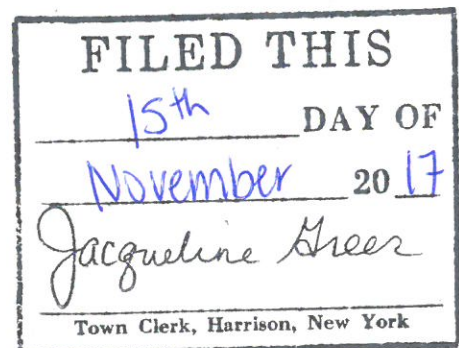 FILED THIS
15th DAY OF
November 2017
Jacqueline Greer
Town Clerk, Harrison, New York